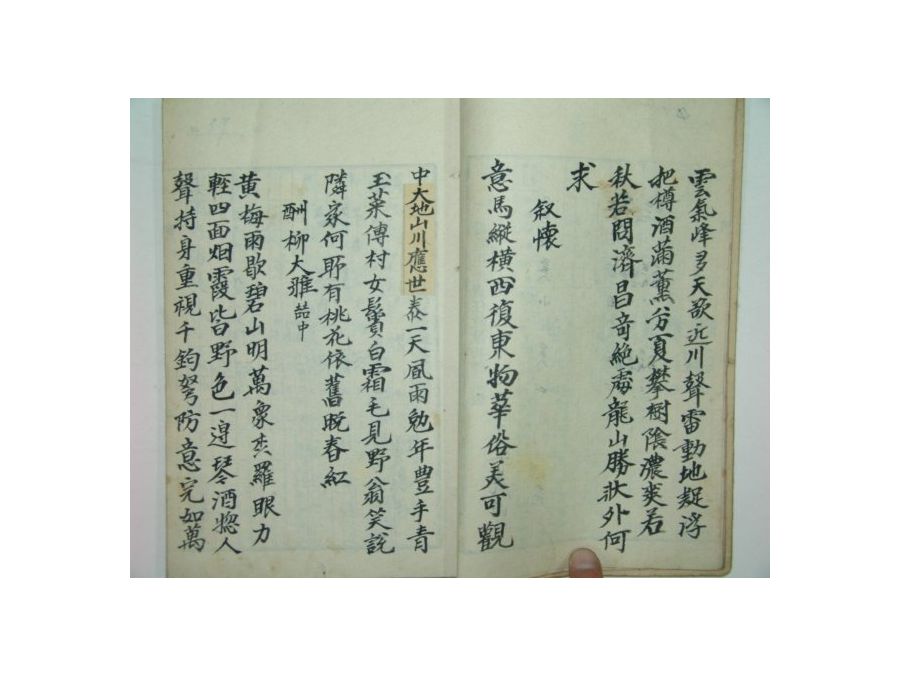 雲氣峰多天欲近川聲雷動地疑浮
把樽酒滿薰兮夏攀樹陰濃爽若
秋若問濟昌奇絶處龍山勝狀外何
求
叙懷
意馬縱橫西復東物華俗美可觀
中大地山川應世泰一天風雨勉年豊手青
玉菜傳村女鬂白霜毛見野翁笑說
隣家何所有桃花依舊晩春紅
酬柳大雅喆中
黄梅雨歇碧山明萬象森羅眼力
輕四面烟霞皆野色一邉琴酒惣人
聲持身重視千鈞弩防意完如萬